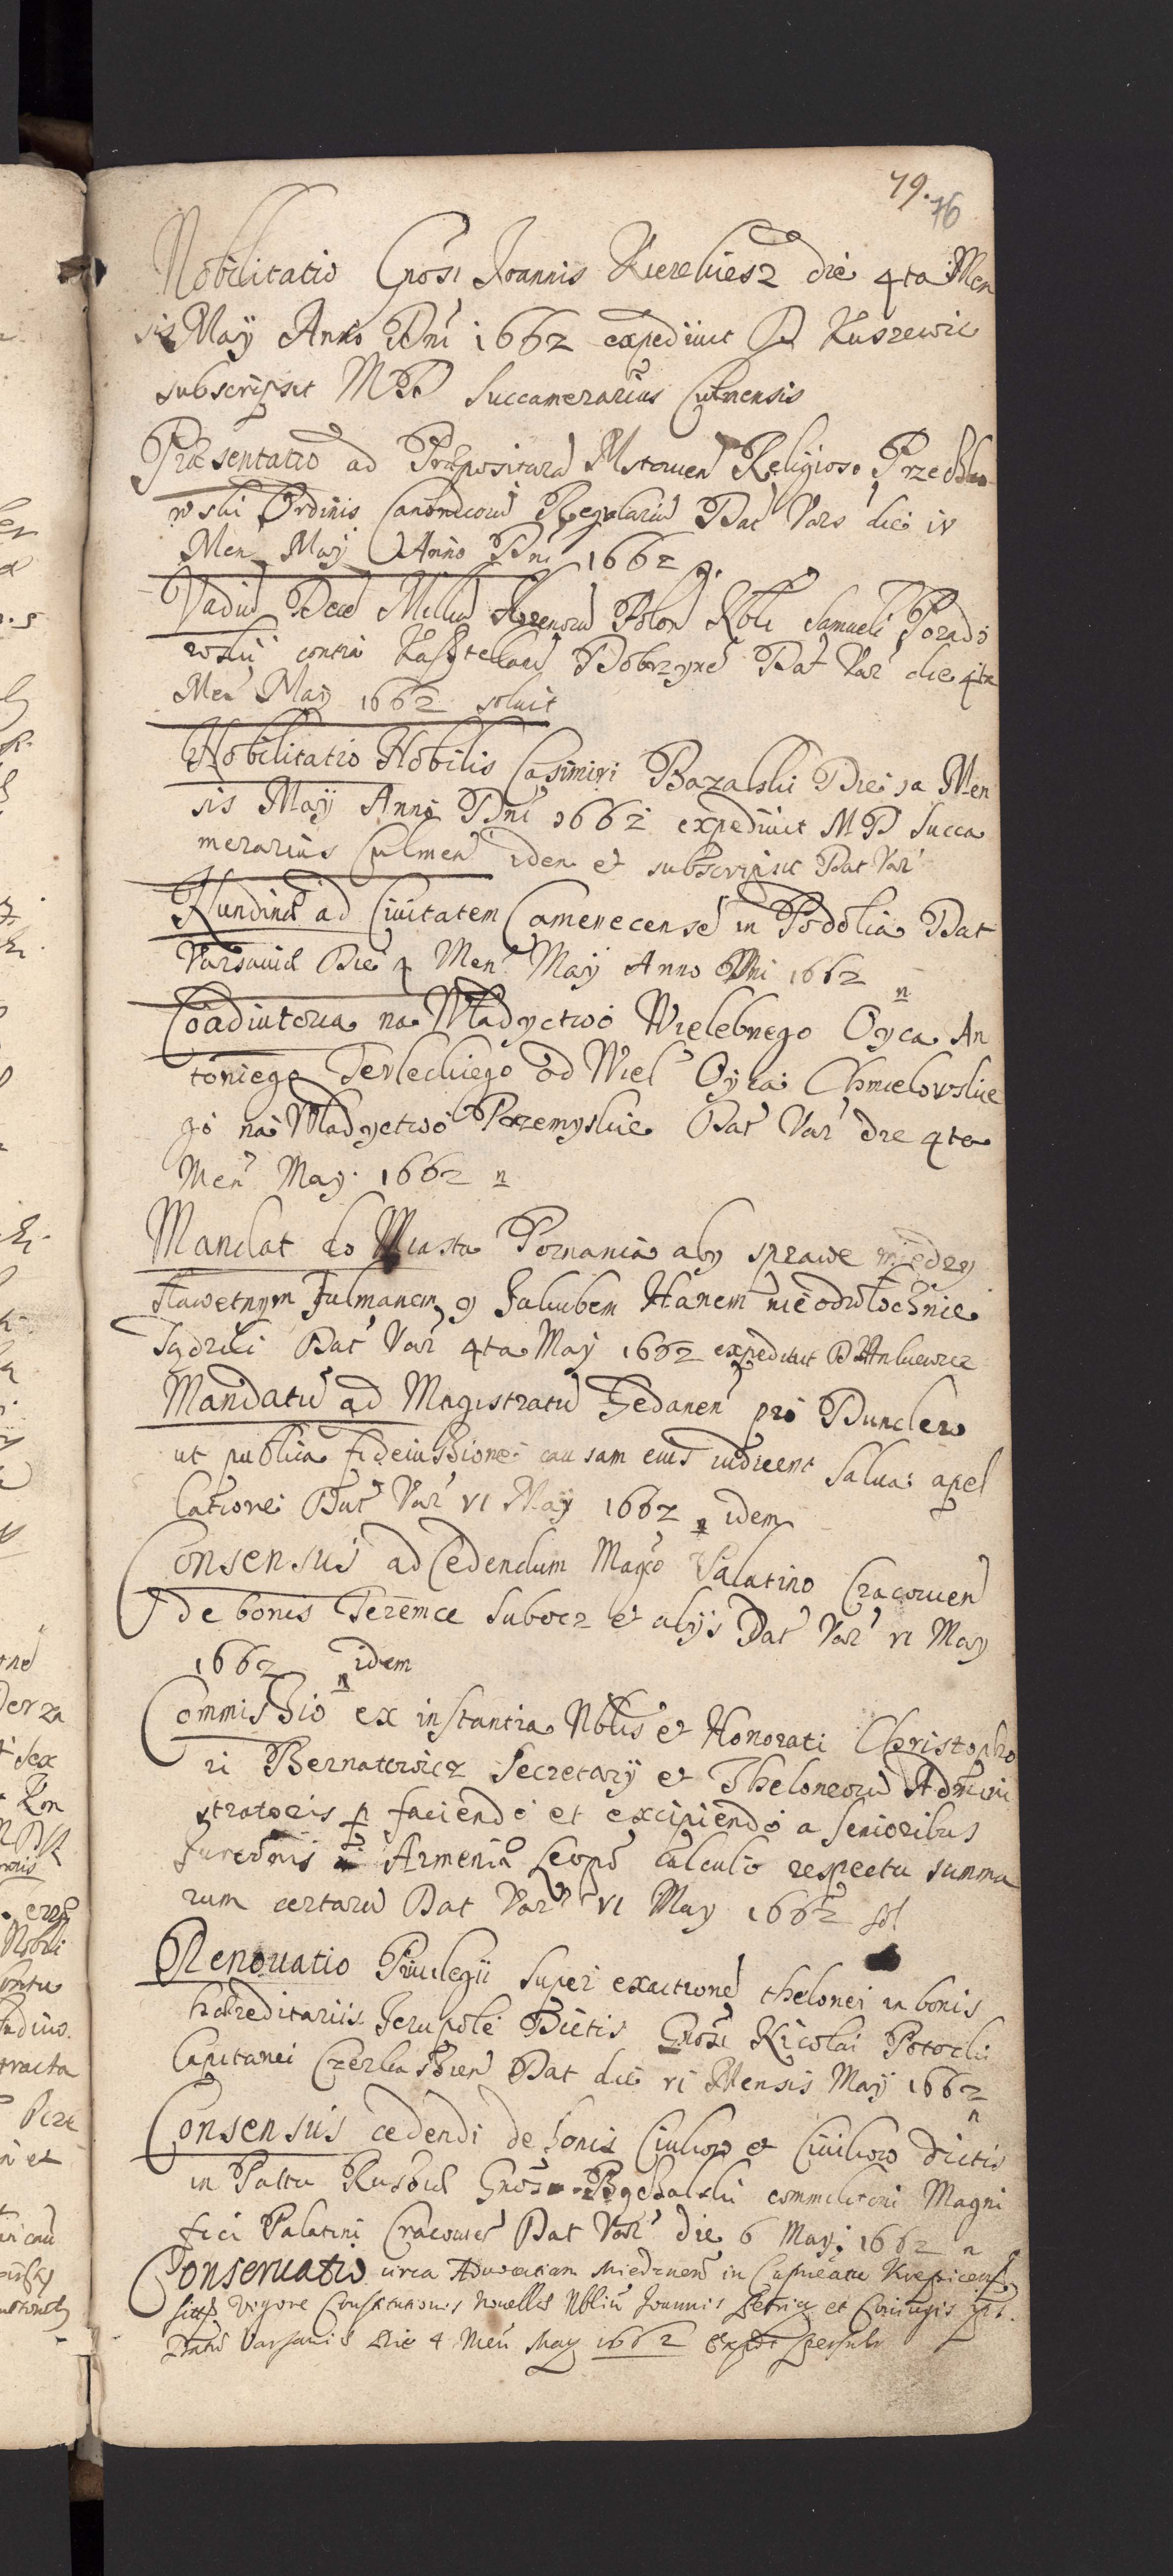 79. 76
Nobilitatio Gnosi Joannis Kierekiesz die 4ta Men
sis May Anno Dni 1662 expediuit D Kuszewic
subscripsit MD Succamerarius Culmensis
Præsentatio ad Præposituram Mstouien Religioso Przechle
wski Ordinis Canonicorũ Regulariũ Dat Vars die iv
Men May Anno Dni 1662
Vadiũ Dece Milliũ florenorũ Polon Gbli Samueli Porado
wski contra Kasztellanũ Dobrzyne Dat Var die 4ta
Men May 1662 soluit
Nobilitatio Nobilis Casimiri Bazalski Die 1a Men
sis May Anno Dni 1662 expediuit MD Succa
merarius Culmen idem et subscripsit Dat Var
Nundinæ ad Ciuitatem Camenecensẽ in Podolia Dat
Varsauiæ Die 4 Men May Anno Dni 1662 n
Coadiutoria na Władyctwo Wielebnego Oyca An
toniego Terleckiego od Wiel Oyca Chmielowskie
go na Władyctwo Przemyskie Dat Var die 4ta
Men May 1662 n
Mandat do Miasta Poznania aby sprawe miedzy
sławetnym Julmanem y Jakubem Hanem nieodwłocznie
sądzili Dat Var 4ta May 1662 expediuit D Ankiewicz
Mandatũ ad Magistratũ Gedanen pro Duncler
ut publica fideiussione causam eius iudicent salua apel
latione Dat Var vi May 1662 n idem
Consensus ad Cedendum Magco Palatino Cracouien
de bonis Terence Subocz et alijs Dat Var vi May
1662 n idem
Commissio ex instantia Nblis et Honorati Christopho
ri Bernatowicz Secretarÿ et Theloneorũ Admini
stratoris p faciendo et excipiendo a Senioribus
Jurednis Armeniæ Leopo calculo respectu summa
rum certarũ Dat Var vi May 1662 sol
Renouatio Priuilegii super exactionẽ thelonei in bonis
hæreditariis Jezupole Dictis Gnosi Nicolai Potocki
Capitanei Czerkassien Dat die vi Mensis May 1662
n
Consensus cedendi de bonis Ciukow et Ciuikow dictis
in Paltu Russiæ Gnoso Bychalski commilitoni Magni
fici Palatini Cracouien Dat Var die 6 May 1662 n
Conseruatio circa Aduocatiam Miedznen in Capineatu Krepicens
sitæ vigore Constitutionis Nouellæ Nbliũ Joannis Petri et Coniugis
Datũ Varsauiæ Die 4 Men May 1662 Expdt